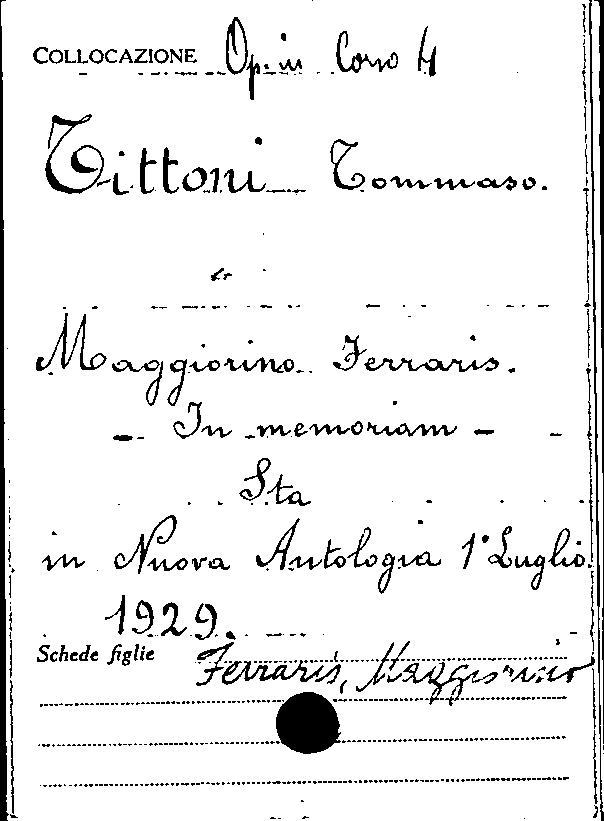 COLLOCAZIONE Op. in Corso 4
Tittoni Tommaso.
Maggiorino Ferraris.
- In memoriam -
Sta
in Nuova Antologia 1° Luglio
1929.
Schede figlie Ferraris, Maggiorino